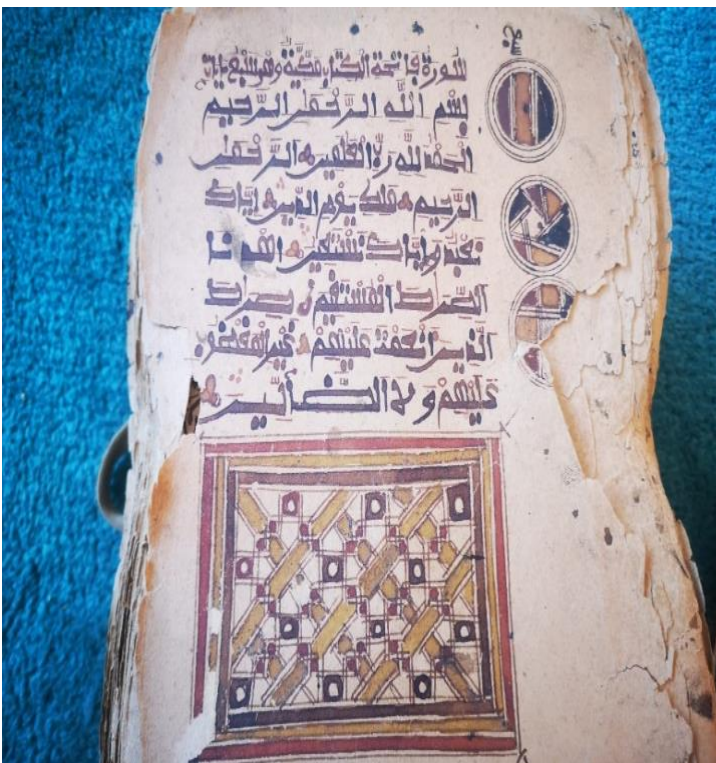 سبع
سورة فاتحة الكتاب مكية وهي سبع ءايات
بِسْمِ اللَّهِ الرَّحْمَٰنِ الرَّحِيمِ
الْحَمْدُ لِلَّهِ رَبِّ الْعَٰلَمِينَ الرَّحْمَٰنِ
الرَّحِيمِ مَلِكِ يَوْمِ الدِّينِ إِيَّاكَ
نَعْبُدُ وَإِيَّاكَ نَسْتَعِينُ اهْدِنَا
الصِّرَٰطَ الْمُسْتَقِيمَ صِرَٰطَ
الَّذِينَ أَنْعَمْتَ عَلَيْهِمْ غَيْرِ الْمَغْضُوبِ
عَلَيْهِمْ وَلَا الضَّآلِّينَ